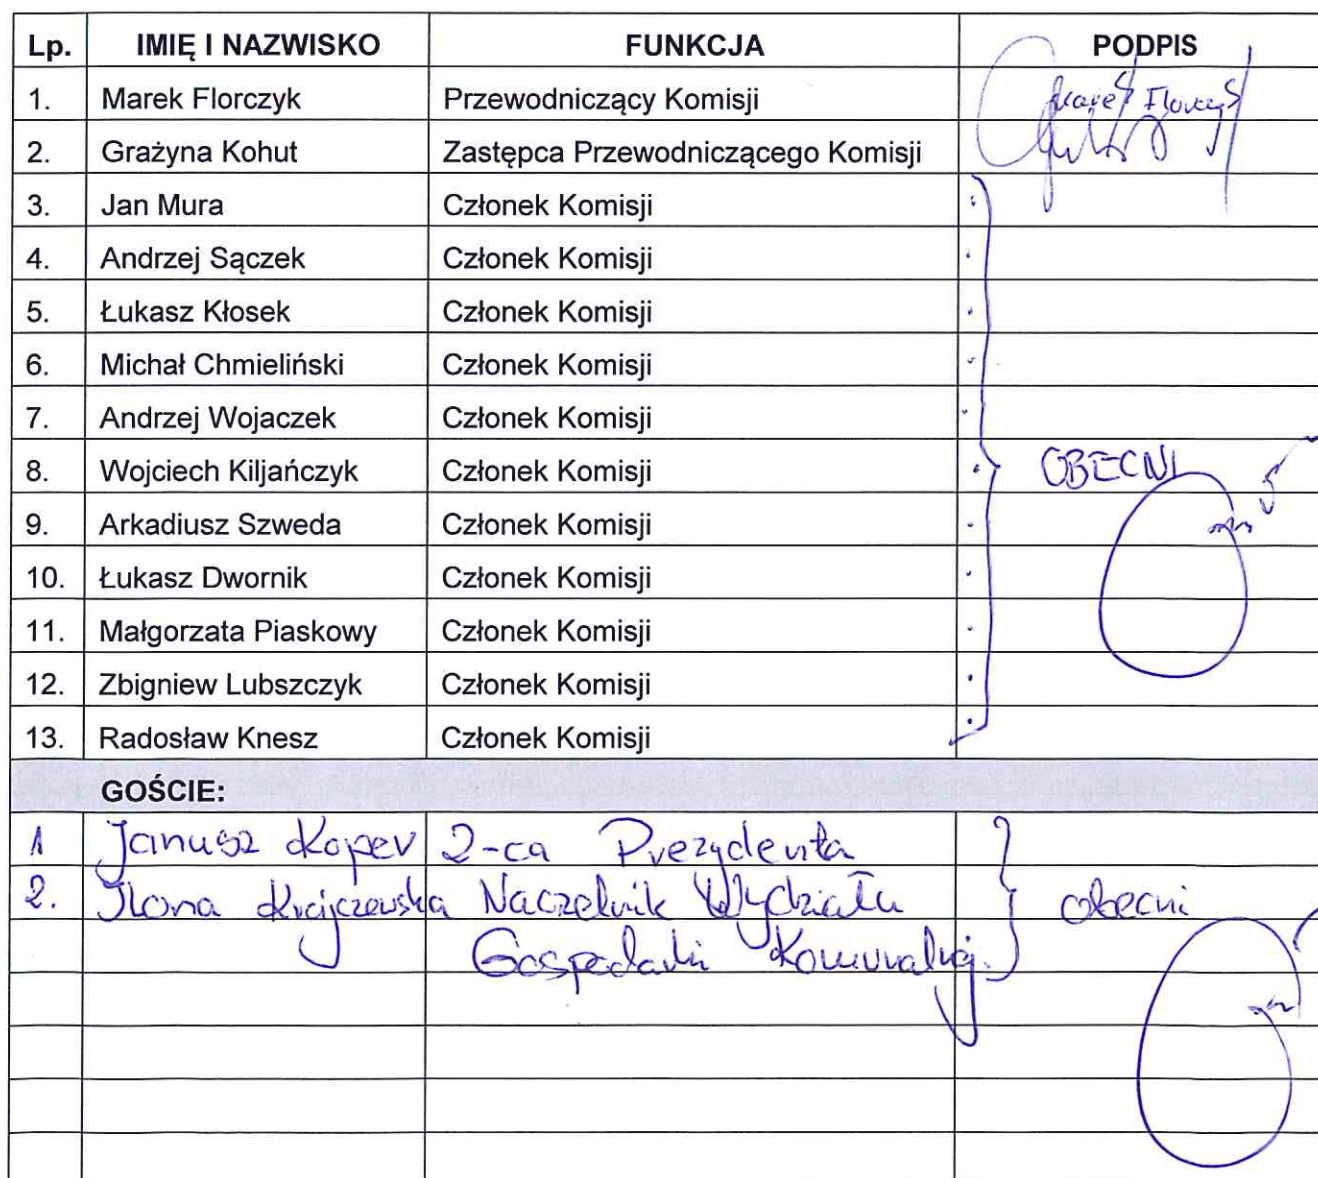 Lp. IMIĘ I NAZWISKO FUNKCJA PODPIS
1. Marek Florczyk Przewodniczący Komisji Marek Florczyk
2. Grażyna Kohut Zastępca Przewodniczącego Komisji
3. Jan Mura Członek Komisji
4. Andrzej Sączek Członek Komisji
5. Łukasz Kłosek Członek Komisji
6. Michał Chmieliński Członek Komisji
7. Andrzej Wojaczek Członek Komisji
8. Wojciech Kiljańczyk Członek Komisji OBECNI
9. Arkadiusz Szweda Członek Komisji
10. Łukasz Dwornik Członek Komisji
11. Małgorzata Piaskowy Członek Komisji
12. Zbigniew Lubszczyk Członek Komisji
13. Radosław Knesz Członek Komisji
GOŚCIE:
1 Janusz Koper Z-ca Prezydenta
2. Ilona Krajczewska Naczelnik Wydziału obecni
Gospodarki Komunalnej.